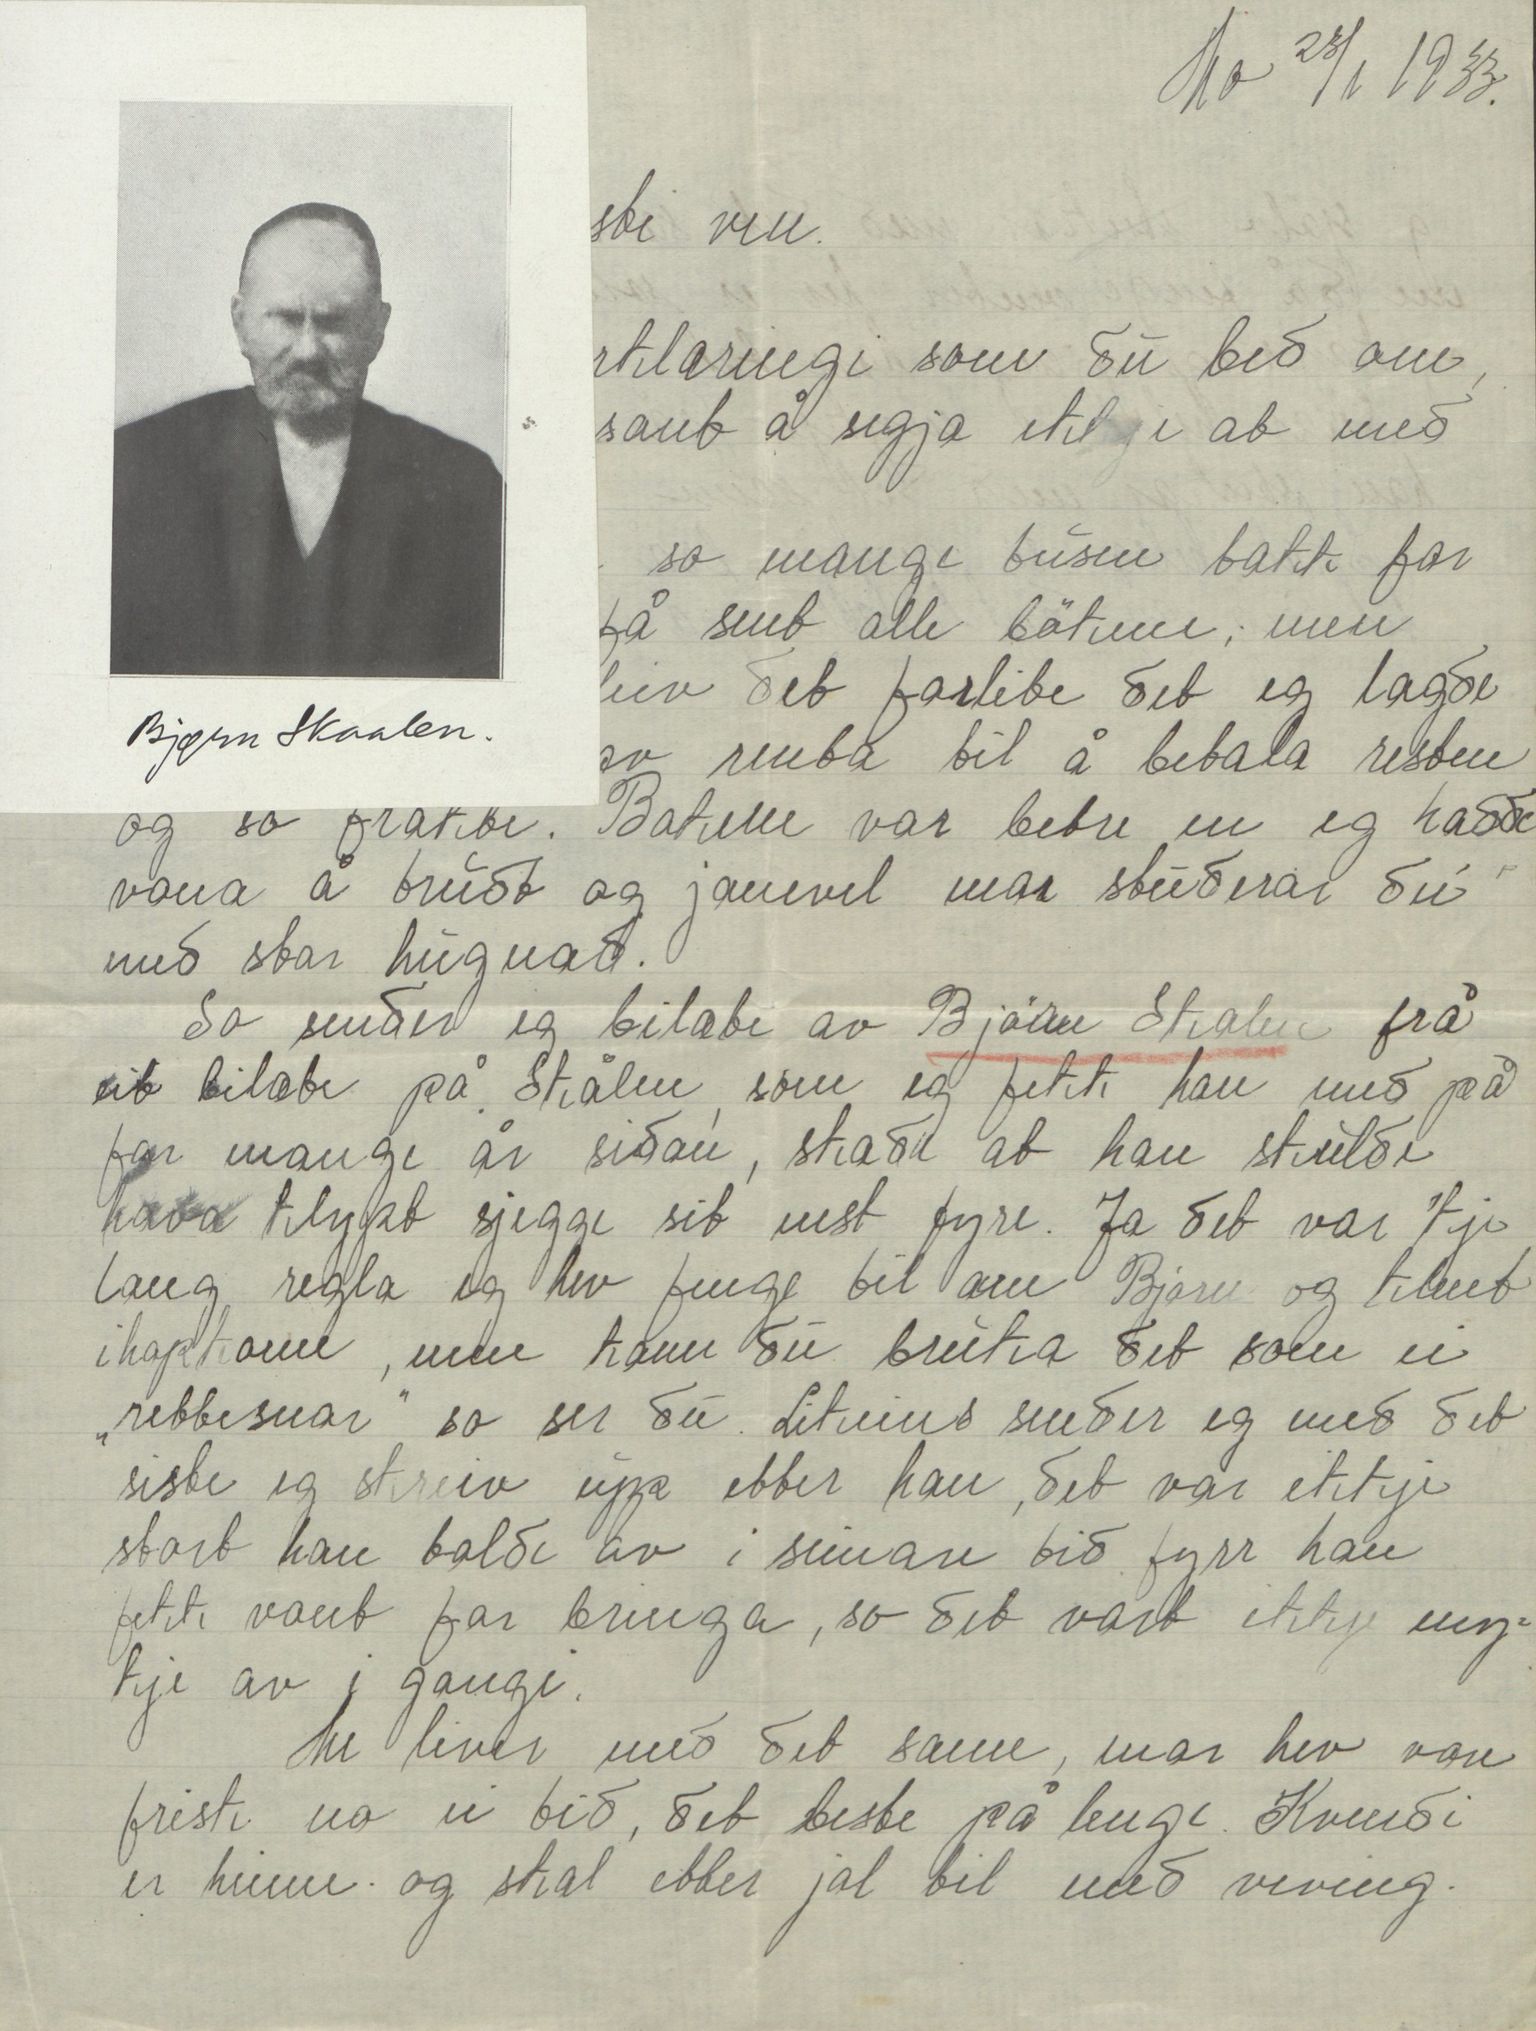 Mo 28/1 1933.
ste ven.
rklæringi som du bed om,
sant å segja ikkje at med
so mange tusen takk for
få sent alle bökene; men
leiv det forlite det eg lagde
av renta til å betala resten
Bjørn Skaalen.
og so frakte. Bokene var betre en eg hadde
vona å trudt og jamvel mor studerar dei
med stor hugnad.
So sender eg bilæte av Björn Skalen frå
eit bilæte på Skålen, som eg fekk han med på
for mange år sidan, skade at han skulde
hava klypt sjegge sit nest fyre. Ja det var kje
lang regla eg hev fenge til om Bjørn og klent
ihopkome, men kann du bruka det som ei
„rettesnor" so ser du. Likeins sender eg med det
siste eg skreiv upp etter han, det var ikkje
stort han tolde av i seinare tid fyrr han
fekk vont for bringa, so det vart ikkje my=
kje av i gongi.
Me liver med det same, mor hev vore
frisk no ei tid, det beste på lenge. Kvendi
er heime og skal etter jol til med veving.